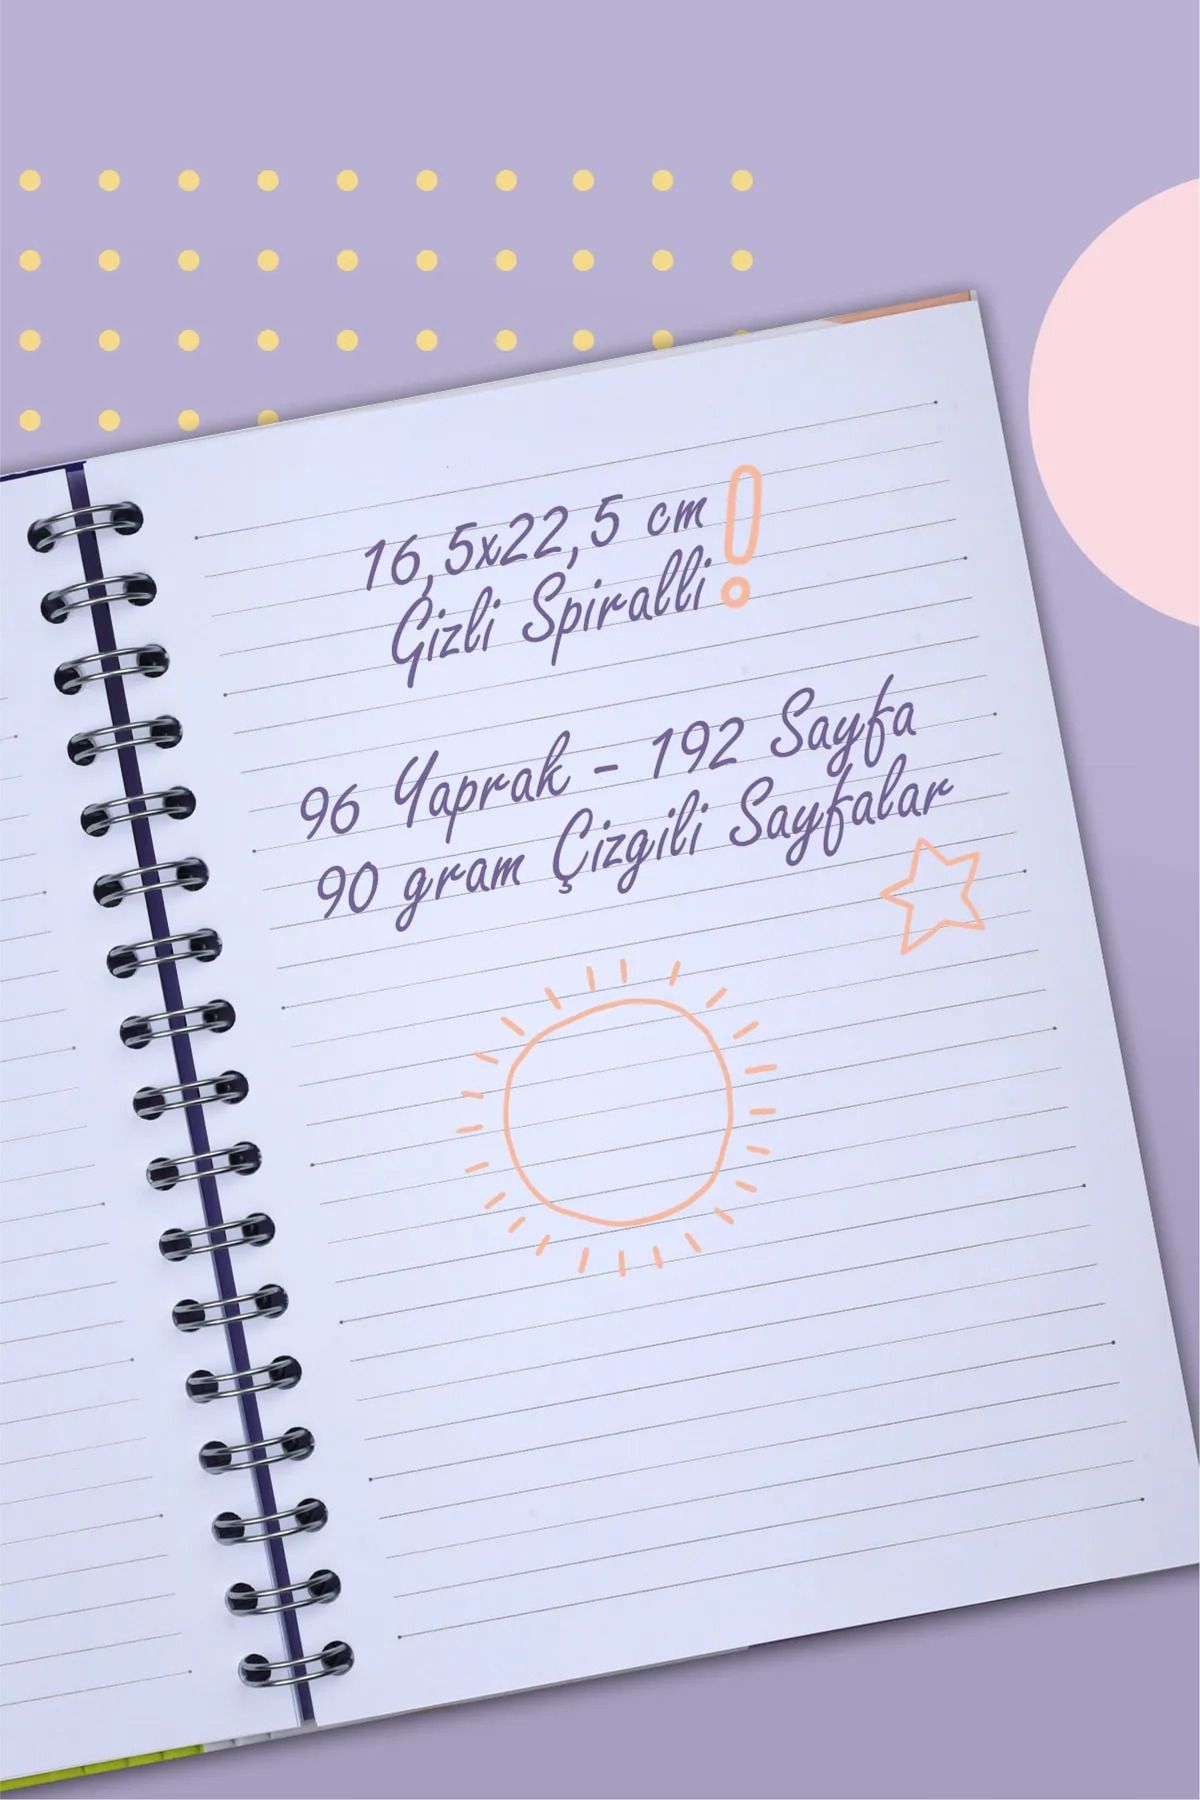 16,5x22,5 cm
Gizli Spiralli
96 Yaprak - 192 Sayfa
90 gram Çizgili Sayfalar